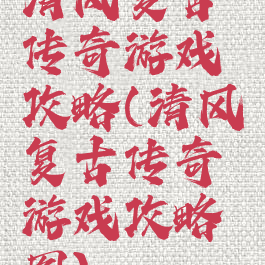 清风复古
传奇游戏
攻略(清风
复古传奇
游戏攻略
图)